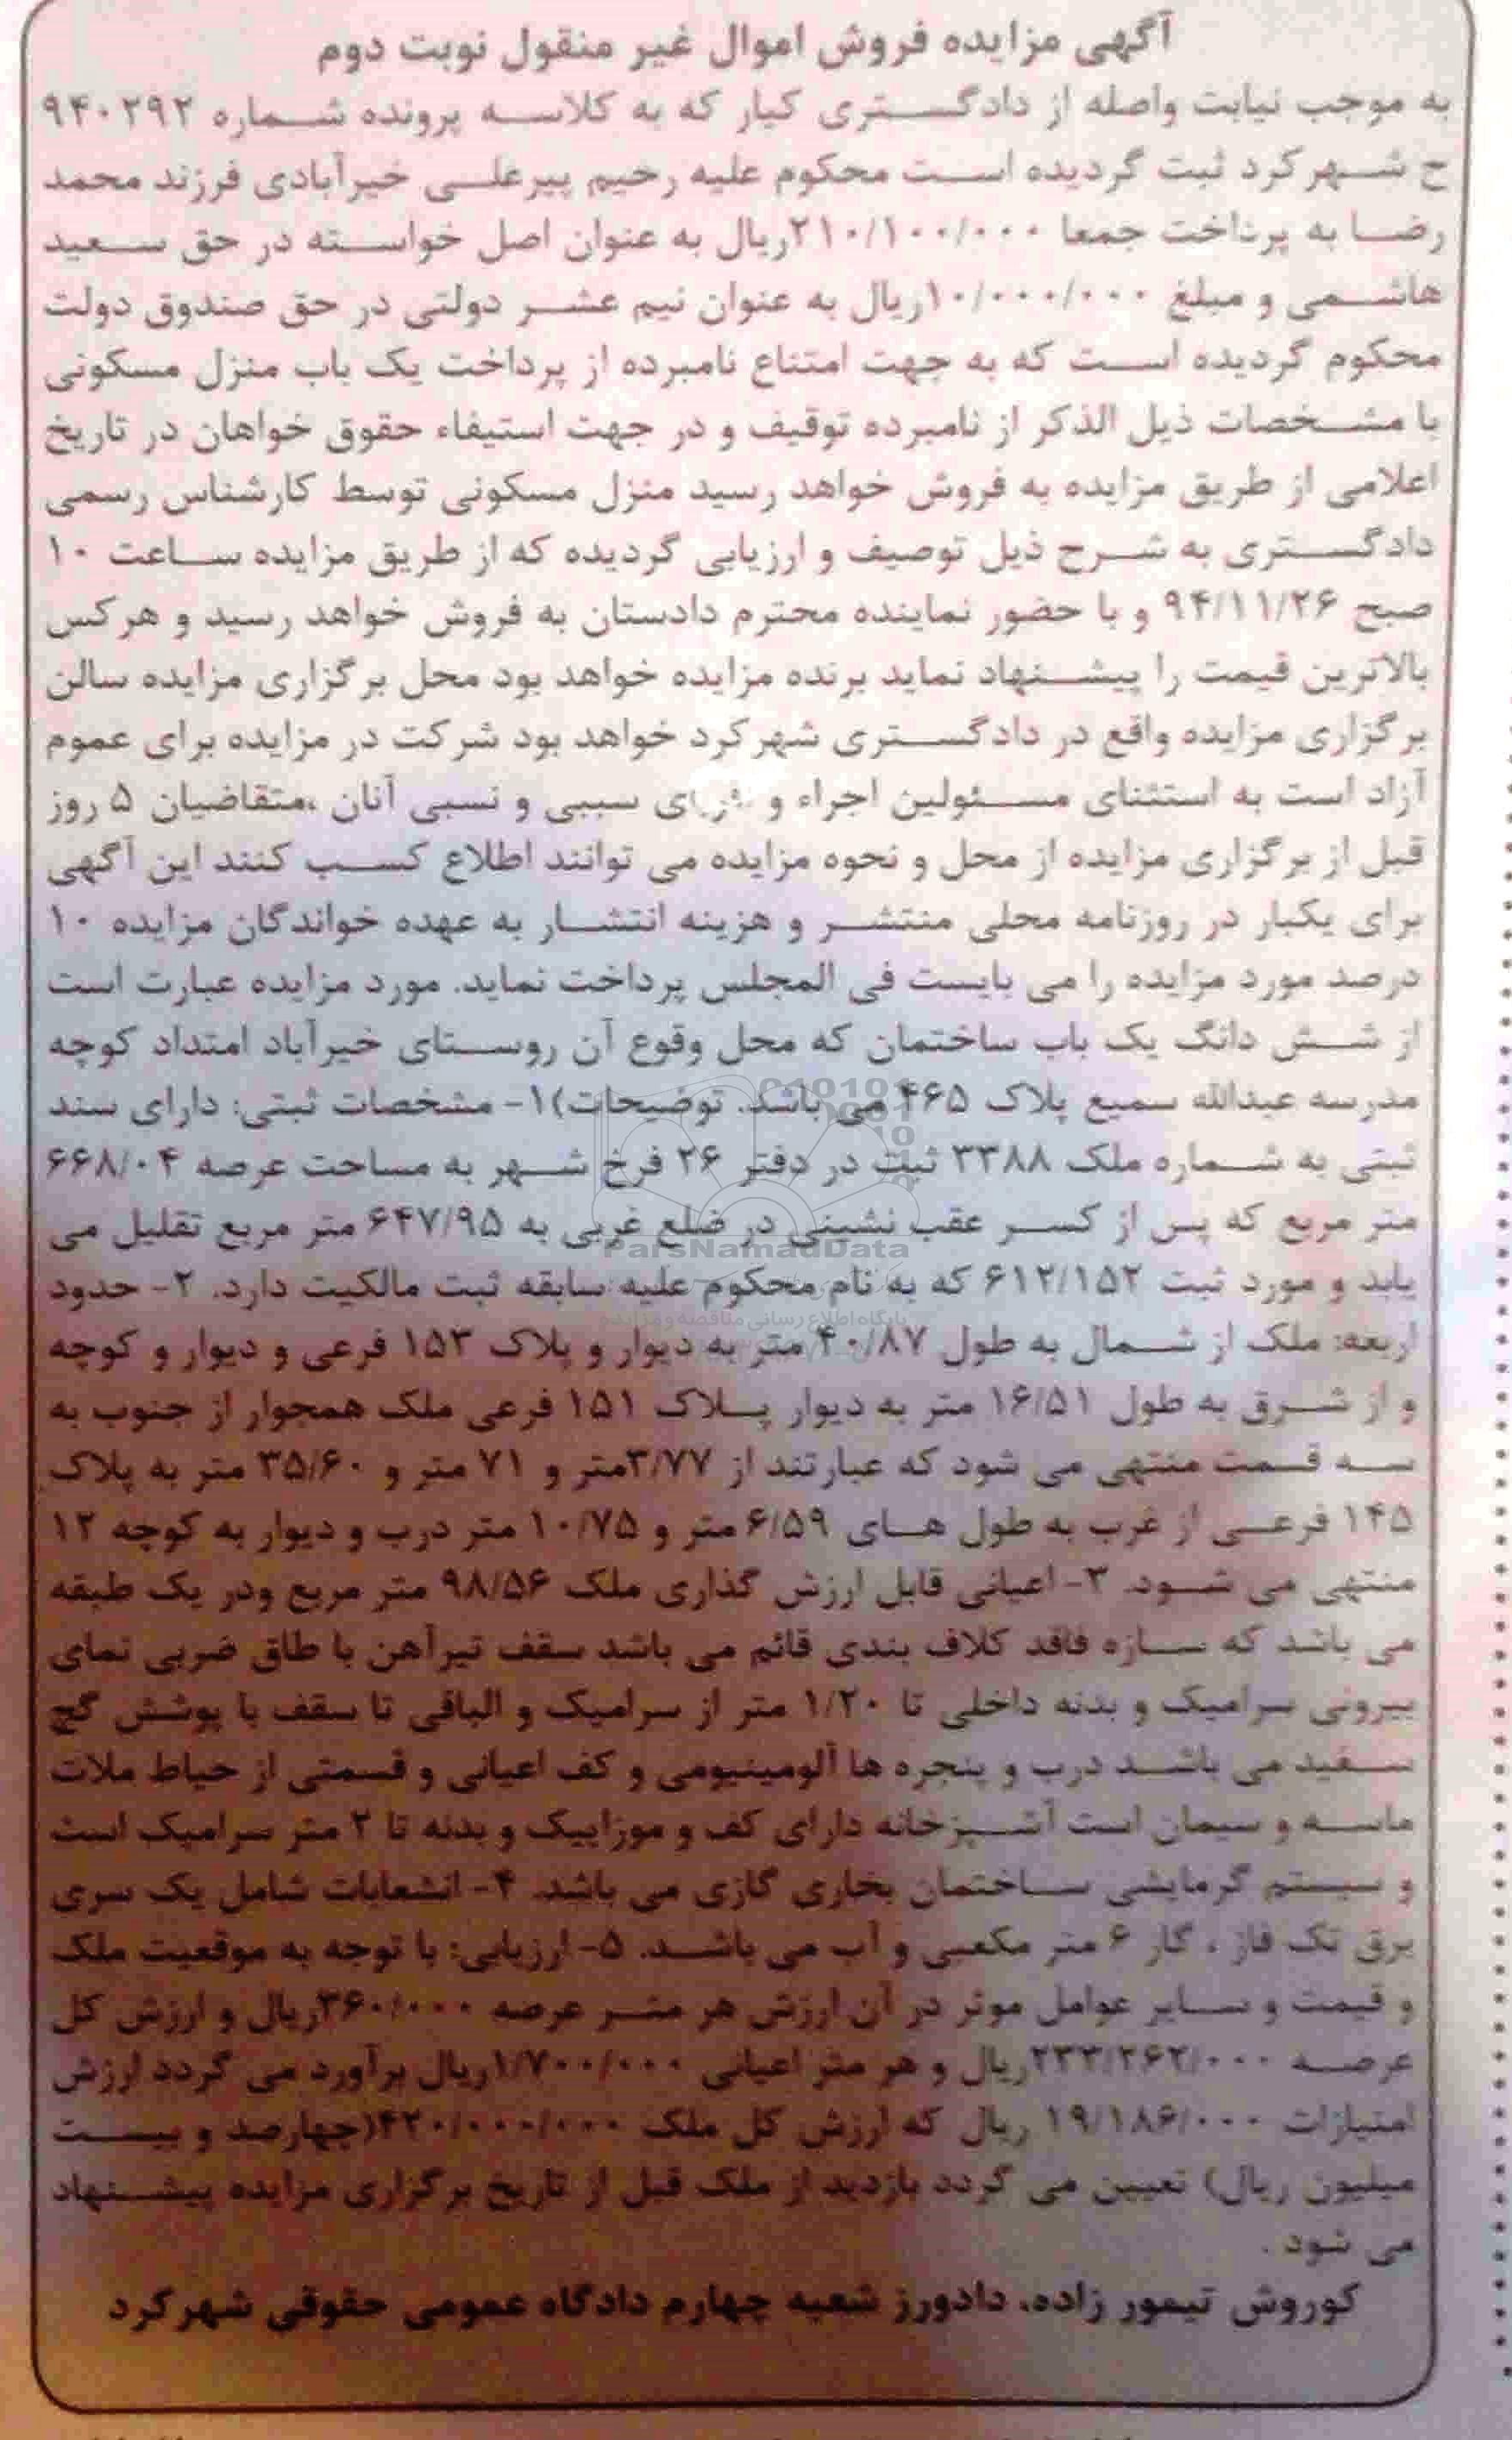 آگهی مزایده فروش اموال غیر منقول نوبت دوم
به موجب نیابت واصله از دادگستری کیار که به کلاسه پرونده شماره ۹۴۰۲۹۲
ح شهرکرد ثبت گردیده است محکوم علیه رحیم پیرعلی خیرآبادی فرزند محمد
رضا به پرداخت جمعا ۲۱۰/۱۰۰/۰۰۰ریال به عنوان اصل خواسته در حق سعید
هاشمی و مبلغ ۱۰/۰۰۰/۰۰۰ریال به عنوان نیم عشر دولتی در حق صندوق دولت
محکوم گردیده است که به جهت امتناع نامبرده از پرداخت یک باب منزل مسکونی
با مشخصات ذیل الذکر از نامبرده توقیف و در جهت استیفاء حقوق خواهان در تاریخ
اعلامی از طریق مزایده به فروش خواهد رسید منزل مسکونی توسط کارشناس رسمی
دادگستری به شرح ذیل توصیف و ارزیابی گردیده که از طریق مزایده ساعت ۱۰
صبح ۹۴/۱۱/۲۶ و با حضور نماینده محترم دادستان به فروش خواهد رسید و هرکس
بالاترین قیمت را پیشنهاد نماید برنده مزایده خواهد بود محل برگزاری مزایده سالن
برگزاری مزایده واقع در دادگستری شهرکرد خواهد بود شرکت در مزایده برای عموم
آزاد است به استثنای مسئولین اجراء و سببی و نسبی آنان ،متقاضیان ۵ روز
قبل از برگزاری مزایده از محل و نحوه مزایده می توانند اطلاع کسب کنند این آگهی
برای یکبار در روزنامه محلی منتشر و هزینه انتشار به عهده خواندگان مزایده ۱۰
درصد مورد مزایده را می بایست فی المجلس پرداخت نماید. مورد مزایده عبارت است
از شش دانگ یک باب ساختمان که محل وقوع آن روستای خیرآباد امتداد کوچه
مدرسه عبدالله سمیع پلاک ۴۶۵ می باشد. توضیحات)۱- مشخصات ثبتی: دارای سند
ثبتی به شماره ملک ۳۳۸۸ ثبت در دفتر ۲۶ فرخ شهر به مساحت عرصه ۶۶۸/۰۴
متر مربع که پس از کسر عقب نشینی در ضلع غربی به ۶۴۷/۹۵ متر مربع تقلیل می
یابد و مورد ثبت ۶۱۲/۱۵۲ که به نام محکوم علیه سابقه ثبت مالکیت دارد. ۲- حدود
اربعه: ملک از شمال به طول ۴۰/۸۷ متر به دیوار و پلاک ۱۵۳ فرعی و دیوار و کوچه
و از شرق به طول ۱۶/۵۱ متر به دیوار پلاک ۱۵۱ فرعی ملک همجوار از جنوب به
سه قسمت منتهی می شود که عبارتند از ۳/۷۷متر و ۷۱ متر و ۳۵/۶۰ متر به پلاک
۱۴۵ فرعی از غرب به طول های ۶/۵۹ متر و ۱۰/۷۵ متر درب و دیوار به کوچه ۱۲
منتهی می شود. ۳- اعیانی قابل ارزش گذاری ملک ۹۸/۵۶ متر مربع ودر یک طبقه
می باشد که سازه فاقد کلاف بندی قائم می باشد سقف تیرآهن با طاق ضربی نمای
بیرونی سرامیک و بدنه داخلی تا ۱/۲۰ متر از سرامیک و الباقی تا سقف با پوشش گچ
سفید می باشد درب و پنجره ها آلومینیومی و کف اعیانی و قسمتی از حیاط ملات
ماسه و سیمان است آشپزخانه دارای کف و موزاییک و بدنه تا ۲ متر سرامیک است
و سیستم گرمایشی ساختمان بخاری گازی می باشد. ۴- انشعابات شامل یک سری
برق تک فاز ، گاز ۶ متر مکعبی و آب می باشد. ۵- ارزیابی: با توجه به موقعیت ملک
و قیمت و سایر عوامل موثر در آن ارزش هر متر عرصه ۳۶۰/۰۰۰ریال و ارزش کل
عرصه ۲۳۳/۲۶۲/۰۰۰ریال و هر متر اعیانی ۱/۷۰۰/۰۰۰ریال برآورد می گردد ارزش
امتیازات ۱۹/۱۸۶/۰۰۰ ریال که ارزش کل ملک ۴۲۰/۰۰۰/۰۰۰(چهارصد و بیست
میلیون ریال) تعیین می گردد بازدید از ملک قبل از تاریخ برگزاری مزایده پیشنهاد
می شود .
کوروش تیمور زاده، دادورز شعبه چهارم دادگاه عمومی حقوقی شهرکرد
ParsNamadData
پایگاه اطلاع رسانی مناقصه و مزایده